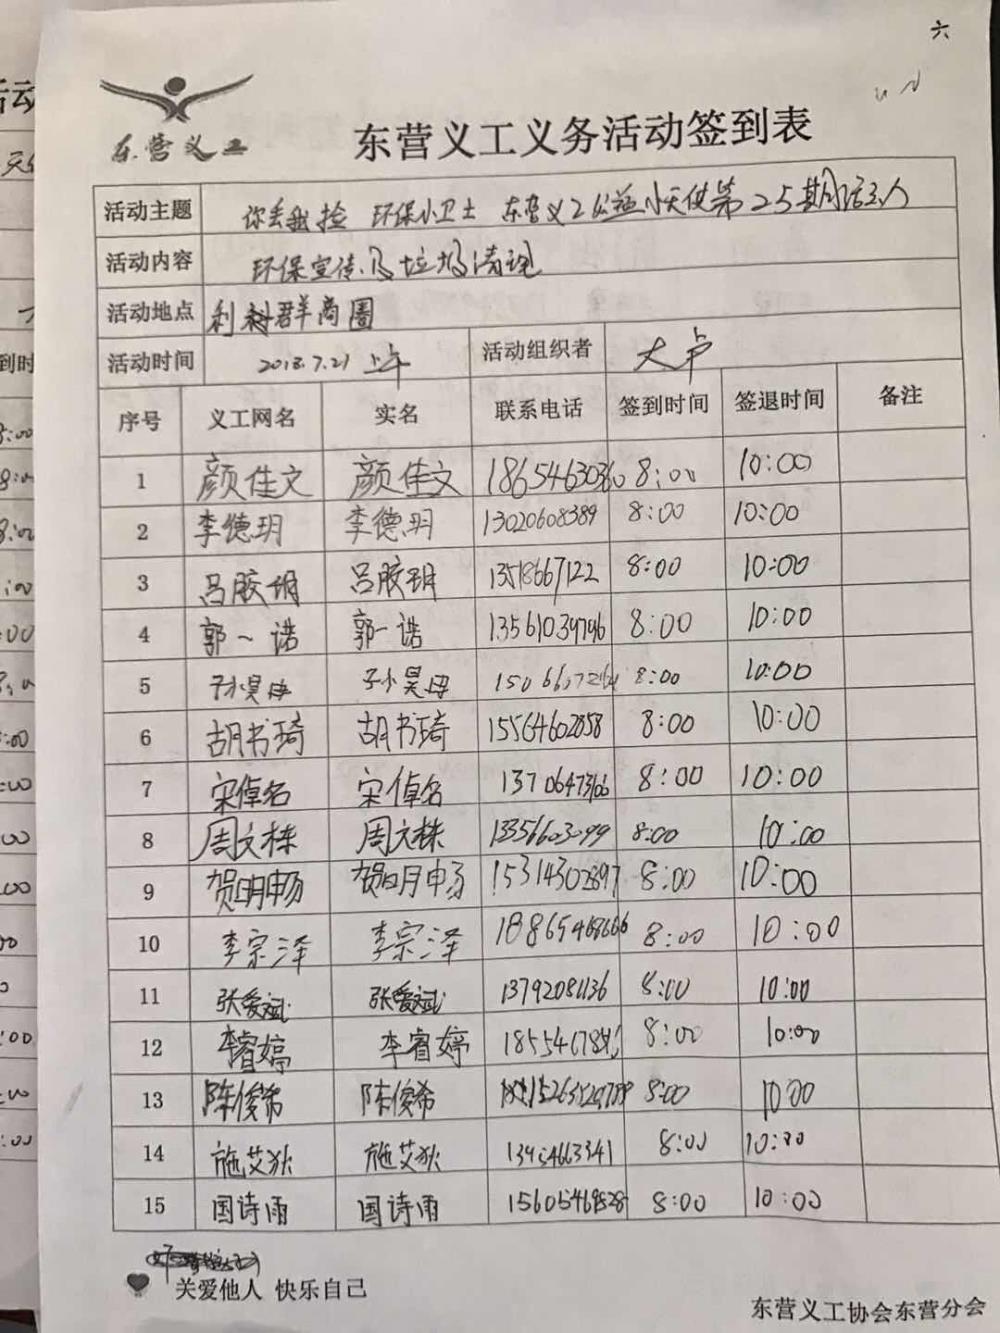 六
东营义工
东营义工义务活动签到表
活动主题 你丢我捡 环保小卫士 东营义工公益小天使第25期活动
活动内容 环保宣传及垃圾清理
活动地点 利群商圈
活动时间 2018.7.21 上午 活动组织者 大卢
序号 义工网名 实名 联系电话 签到时间 签退时间 备注
1 颜佳文 颜佳文 8:00 10:00
2 李德玥 李德玥 13020608389 8:00 10:00
3 吕胶玥 吕胶玥 13518667122 8:00 10:00
4 郭一诰 郭一诰 13561039796 8:00 10:00
5 8:00 10:00
6 胡书琦 胡书琦 15564602858 8:00 10:00
7 宋倬名 宋倬名 13706473166 8:00 10:00
8 周文栋 周文栋 13356603099 8:00 10:00
9 贺明申易 贺明申易 15314302897 8:00 10:00
10 李宗泽 李宗泽 8:00 10:00
11 张爱斌 张爱斌 13792081136 8:00 10:00
12 李睿婷 李睿婷 8:00 10:00
13 陈俊希 陈俊希 8:00 10:00
14 施艾狄 施艾狄 8:00 10:00
15 国诗雨 国诗雨 15605468528 8:00 10:00
关爱他人 快乐自己
东营义工协会东营分会